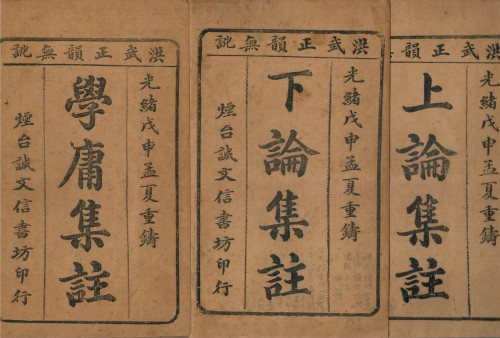 洪武正韻
光緒戊申孟夏重鑄
上論集註
洪武正韻無訛
光緒戊申孟夏重鑄
下論集註
煙台誠文信書坊印行
洪武正韻無訛
光緒戊申孟夏重鑄
學庸集註
煙台誠文信書坊印行